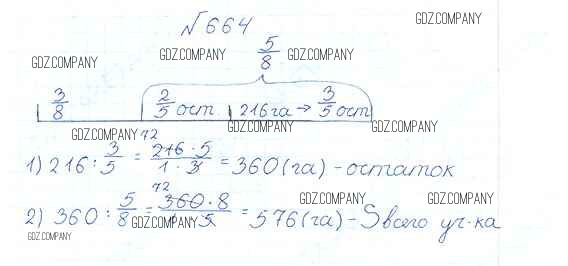 №664
GDZ.COMPANY
GDZ.COMPANY GDZ.COMPANY 5/8 GDZ.COMPANY
3/8 2/5 ост. 216 га → 3/5 ост
GDZ.COMPANY GDZ.COMPANY GDZ.COMPANY
72
1) 216 : 3/5 = 216 · 5 / 1 · 3 = 360 (га) - остаток
72 GDZ.COMPANY GDZ.COMPANY
2) 360 : 5/8 = 360 · 8 / 5 = 576 (га) - S всего уч-ка
GDZ.COMPANY GDZ.COMPANY